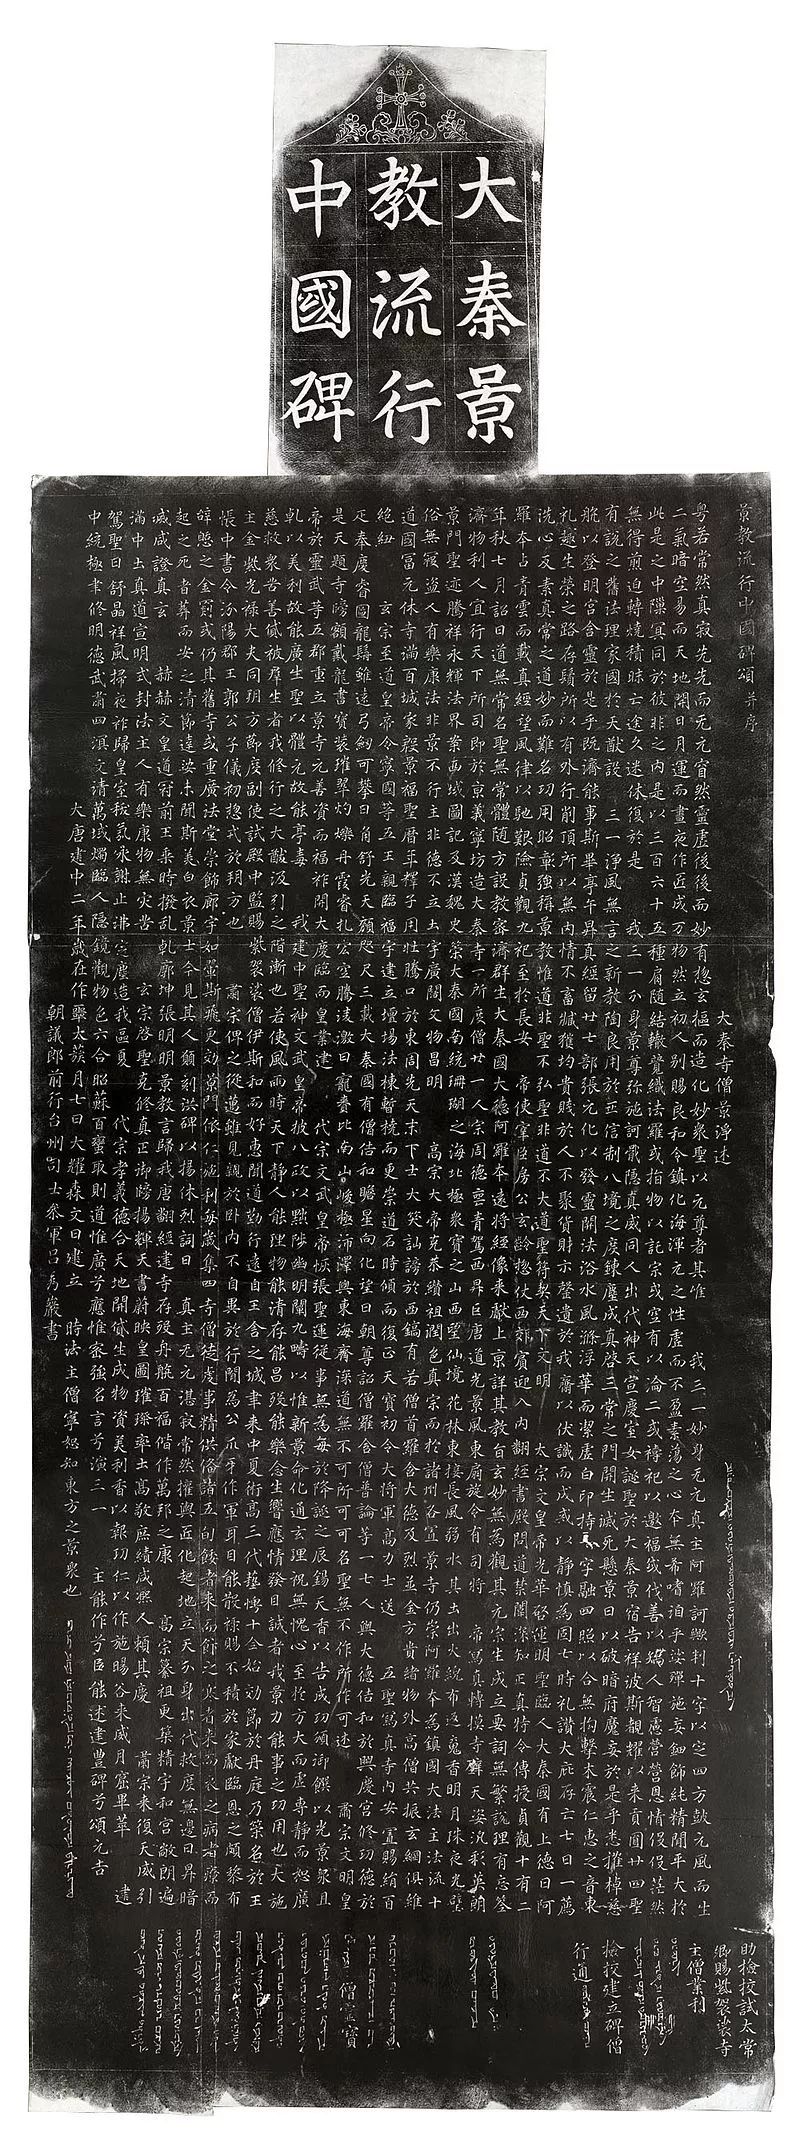 大秦景
教流行
中國碑
景教流行中國碑頌并序
大秦寺僧景淨述
粵若常然真寂先先而无元窅然靈虛後後而妙有惣玄樞而造化妙衆聖以元尊者其唯我三一妙身无元真主阿羅訶歟判十字以定四方鼓元風而生
二氣暗空易而天地開日月運而晝夜作匠成万物然立初人別賜良和令鎮化海渾元之性虛而不盈素蕩之心本無希嗜洎乎娑殫施妄鈿飾純精閒平大於
此是之中隟冥同於彼非之內是以三百六十五種肩隨結轍競織法羅或指物以託宗或空有以淪二或禱祀以邀福或伐善以矯人智慮營營恩情役役茫然
無得煎迫轉燒積昧亡途久迷休復於是我三一分身景尊弥施訶戢隱真威同人出代神天宣慶室女誕聖於大秦景宿告祥波斯覩耀以來貢圓廿四聖
有說之舊法理家國於大猷設三一淨風無言之新教陶良用於正信制八境之度鍊塵成真啓三常之門開生滅死懸景日以破暗府魔妄於是乎悉摧棹慈
航以登明宮含靈於是乎既濟能事斯畢亭午昇真經留廿七部張元化以發靈關法浴水風滌浮華而潔虛白印持十字融四照以合無拘擊木震仁惠之音東
礼趣生榮之路存鬚所以有外行削頂所以無內情不畜臧獲均貴賤於人不聚貨財示罄遺於我齋以伏識而成戒以靜慎為固七時礼讚大庇存亡七日一薦
洗心反素真常之道妙而難名功用昭彰強稱景教惟道非聖不弘聖非道不大道聖符契天下文明太宗文皇帝光華啓運明聖臨人大秦國有上德曰阿
羅本占青雲而載真經望風律以馳艱險貞觀九祀至於長安帝使宰臣房公玄齡惣仗西郊賓迎入內翻經書殿問道禁闈深知正真特令傳授貞觀十有二
年秋七月詔曰道無常名聖無常體隨方設教密濟群生大秦國大德阿羅本遠將經像來獻上京詳其教旨玄妙無為觀其元宗生成立要詞無繁說理有忘筌
濟物利人宜行天下所司即於京義寧坊造大秦寺一所度僧廿一人宗周德喪青駕西昇巨唐道光景風東扇旋令有司將帝寫真轉摸寺壁天姿汎彩英朗
景門聖迹騰祥永輝法界案西域圖記及漢魏史策大秦國南統珊瑚之海北極衆寶之山西望仙境花林東接長風弱水其土出火綄布返魂香明月珠夜光璧
俗無寇盜人有樂康法非景不行主非德不立土宇廣闊文物昌明高宗大帝克恭纘祖潤色真宗而於諸州各置景寺仍崇阿羅本為鎮國大法主法流十
道國富元休寺滿百城家殷景福聖曆年釋子用壯騰口於東周先天末下士大笑訕謗於西鎬有若僧首羅含大德及烈並金方貴緒物外高僧共振玄綱俱維
絕紐玄宗至道皇帝令寧國等五王親臨福宇建立壇場法棟暫橈而更崇道石時傾而復正天寶初令大將軍高力士送五聖寫真寺內安置賜絹百
疋奉慶睿圖龍髯雖遠弓劒可攀日角舒光天顏咫尺三載大秦國有僧佶和瞻星向化望日朝尊詔僧羅含僧普論等一七人與大德佶和於興慶宮修功德於
是天題寺牓額戴龍書寶裝璀翠灼爍丹霞睿扎宏空騰凌激日寵賚比南山峻極沛澤與東海齊深道無不可所可可名聖無不作所作可述肅宗文明皇
帝於靈武等五郡重立景寺元善資而福祚開大慶臨而皇業建代宗文武皇帝恢張聖運從事無為每於降誕之辰錫天香以告成功頒御饌以光景衆且
乹以美利故能廣生聖以體元故能亭毒我建中聖神文武皇帝披八政以黜陟幽明闡九疇以惟新景命化通玄理祝無愧心至於方大而虛專靜而恕廣
慈救衆苦善貸被群生者我修行之大猷汲引之階漸也若使風雨時天下靜人能理物能清存能昌歿能樂念生響應情發目誠者我景力能事之功用也大施
主金紫光祿大夫同朔方節度副使試殿中監賜紫袈裟僧伊斯和而好惠聞道勤行遠自王舍之城聿來中夏術高三代藝博十全始効節於丹庭乃策名於王
帳中書令汾陽郡王郭公子儀初惣戎於朔方也肅宗俾之從邁雖見親於卧內不自異於行間為公爪牙作軍耳目能散祿賜不積於家獻臨恩之頗黎布
辞憩之金罽或仍其舊寺或重廣法堂崇飾廊宇如翬斯飛更効景門依仁施利每歲集四寺僧徒虔事精供俻諸五旬餧者來而飰之寒者來而衣之病者療而
起之死者葬而安之清節達娑未聞斯美白衣景士今見其人願刻洪碑以揚休烈詞曰真主无元湛寂常然權輿匠化起地立天分身出代救度無邊日昇暗
滅咸證真玄赫赫文皇道冠前王乘時撥亂乹廓坤張明明景教言歸我唐翻經建寺存歿舟航百福偕作萬邦之康高宗纂祖更築精宇和宮敞朗遍
滿中土真道宣明式封法主人有樂康物無灾苦玄宗啓聖克修真正御牓揚輝天書蔚映皇圖璀璨率土高敬庶績咸熙人賴其慶肅宗來復天威引
駕聖日舒晶祥風掃夜祚歸皇室祅氛永謝止沸定塵造我區夏代宗孝義德合天地開貸生成物資美利香以報功仁以作施暘谷來威月窟畢萃建
中統極聿修明德武肅四溟文清萬域燭臨人隱鏡觀物色六合昭蘇百蠻取則道惟廣兮應惟密強名言兮演三一主能作兮臣能述建豐碑兮頌元吉
大唐建中二年歲在作噩太蔟月七日大耀森文日建立時法主僧寧恕知東方之景衆也
朝議郎前行台州司士叅軍呂秀巖書
助撿挍試太常
卿賜紫袈裟寺
主僧業利
撿挍建立碑僧
行通
僧靈寶